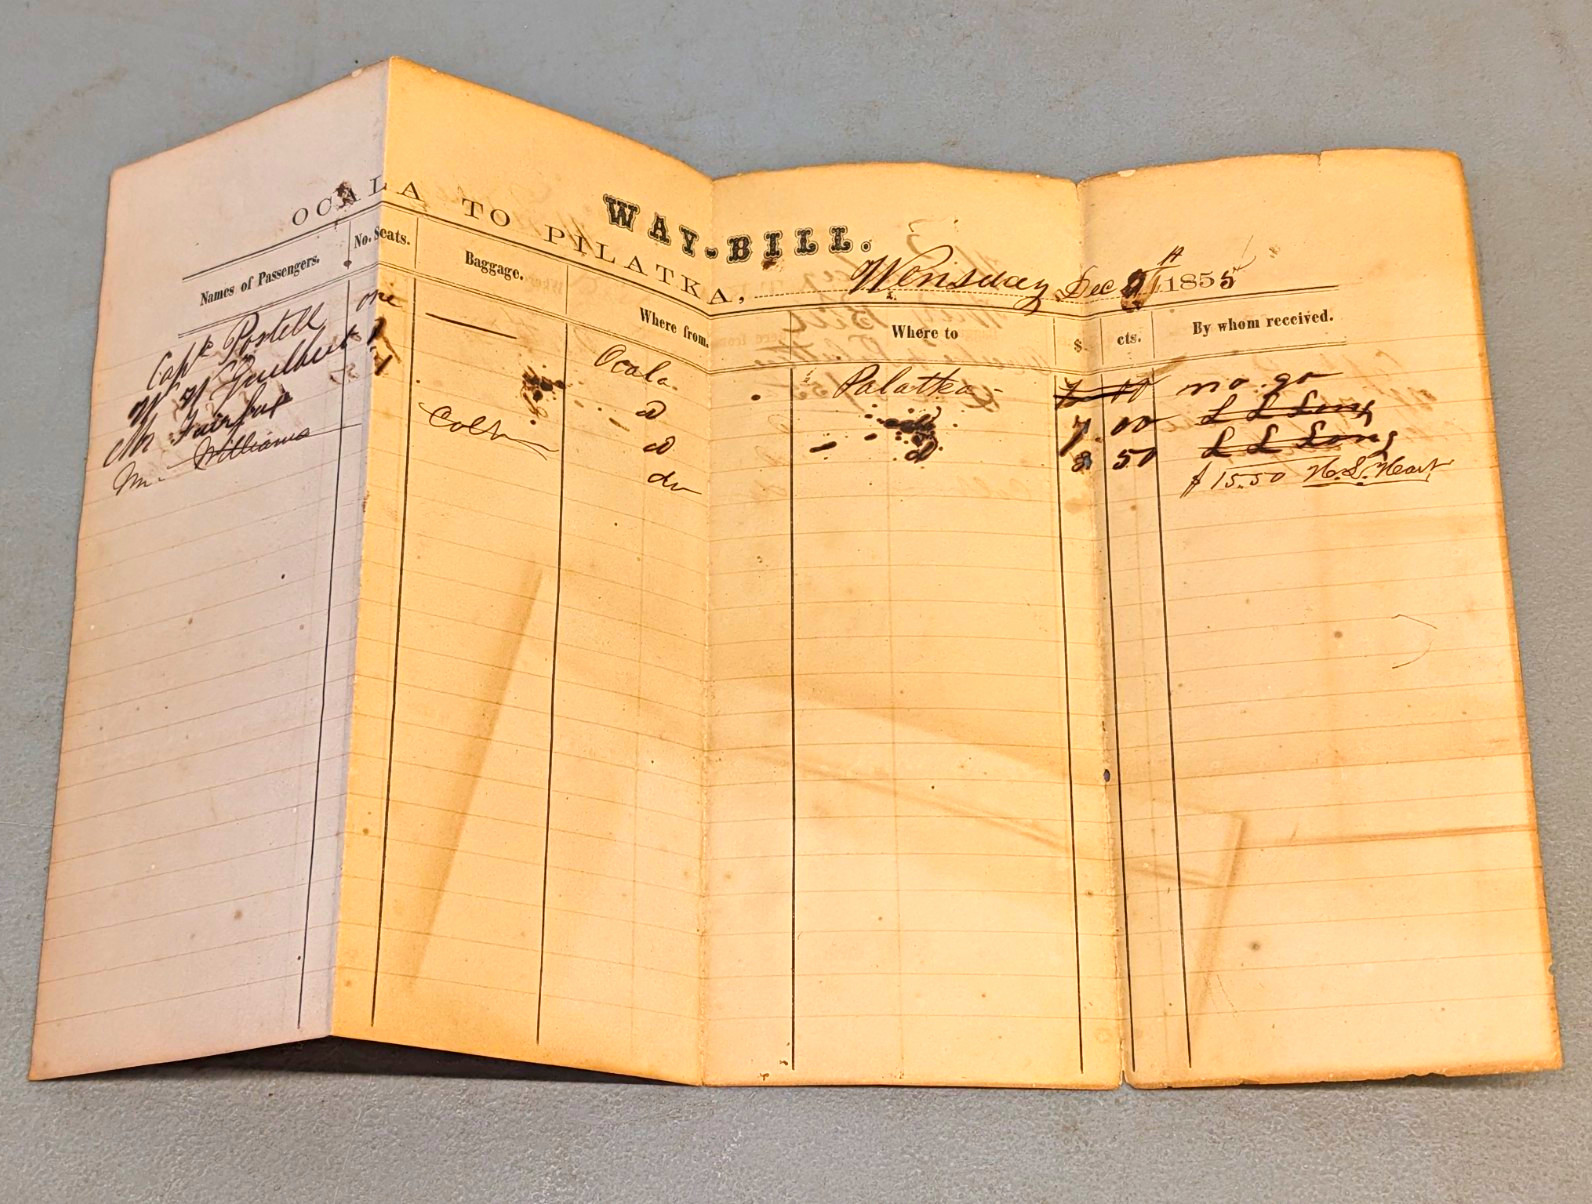 WAY-BILL.
OCALA TO PILATKA, Wensday Dec 1855
Names of Passengers. No. Seats. Baggage. Where from. Where to $ cts. By whom received.
Capt Postell one Ocala Palatka no go
1 do 7 00 L L Long
Mr Fairbax 1 do do 8 50 L L Long
Mr. Williams do $15.50 H. L. Hart